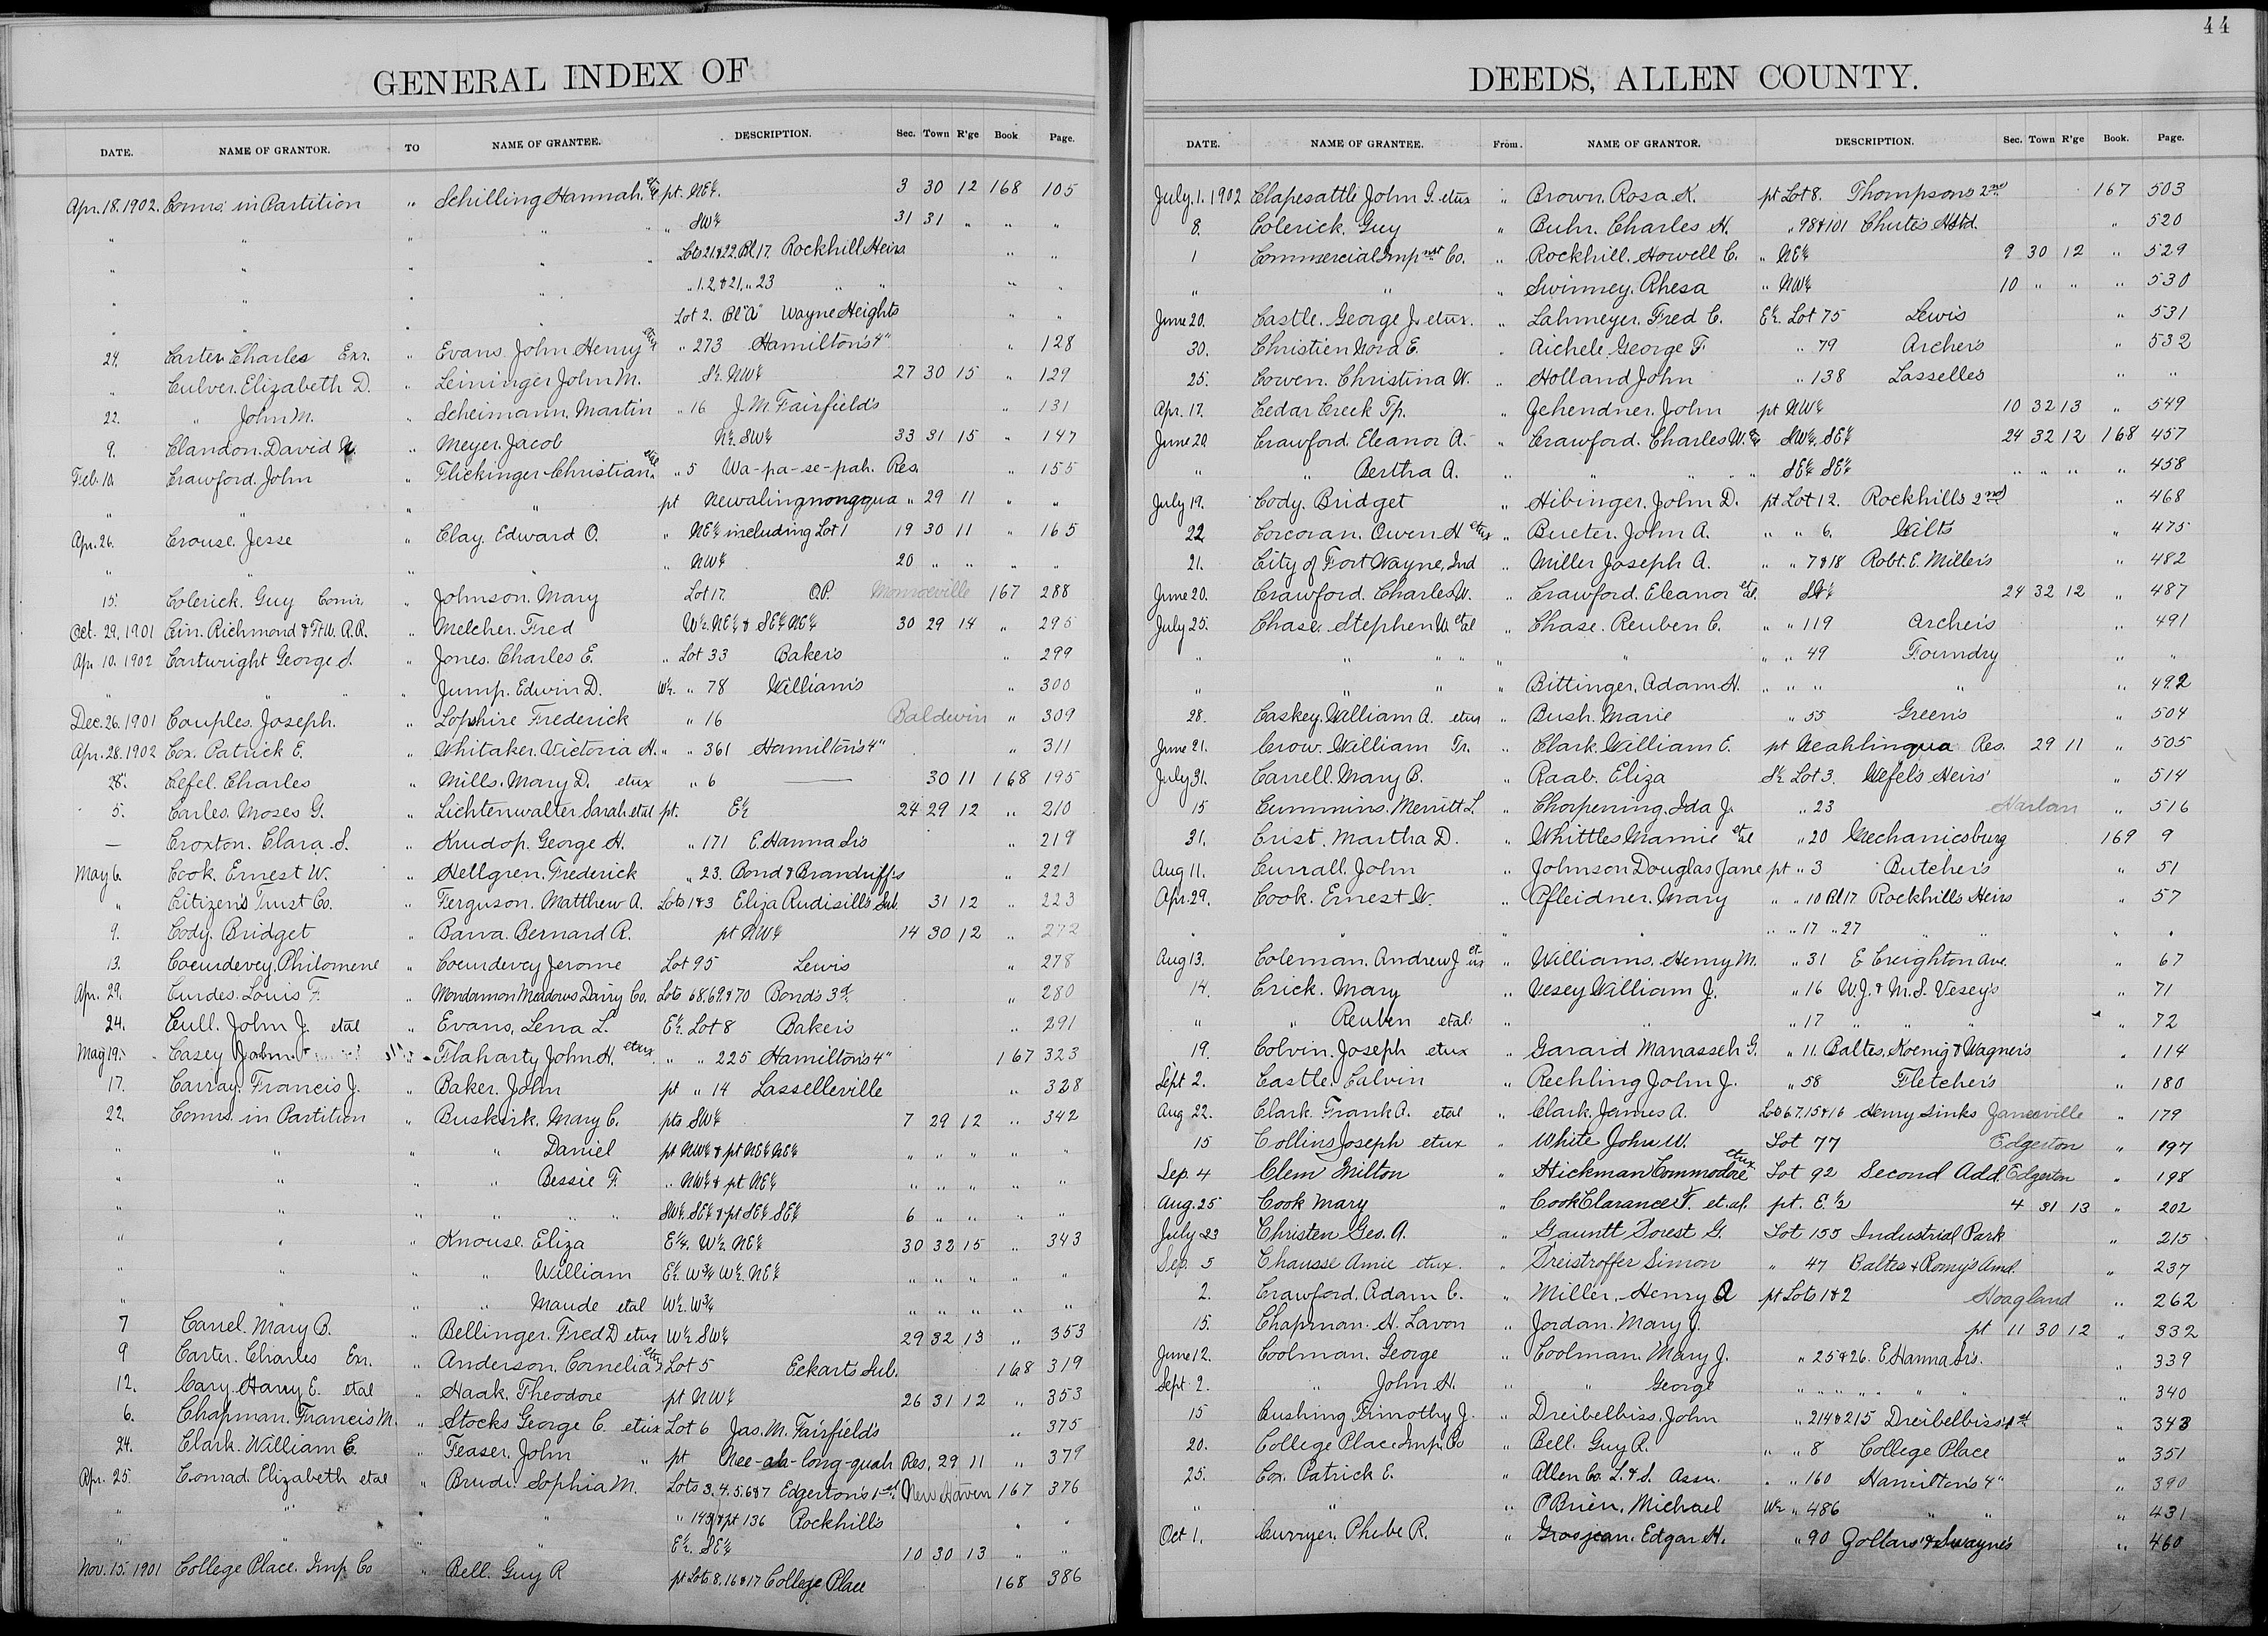 44
GENERAL INDEX OF
DATE. NAME OF GRANTOR. TO NAME OF GRANTEE. DESCRIPTION. Sec. Town R'ge Book. Page.
Apr. 18. 1902. Comrs. in Partition " Schilling Hannah. pt. NE¼. 3 30 12 168 105
" " " " " SW¼ 31 31 " " "
" " " " " Lots 21.&22. Bl 17. Rockhill Heirs " "
" " " " " 1. 2. & 21, " 23 " " " "
" " " " Lot 2. Bl "A" Wayne Heights " "
24. Carter Charles Exr. " Evans. John Henry etux " 273 Hamilton's 4" " 128
" Culver. Elizabeth D. " Leininger John M. S½. NW¼ 27 30 15 " 129
22. " John M. " Scheimann. Martin " 16 J. M. Fairfield's " 131
9. Clandon. David N. " Meyer. Jacob N½ SW¼ 33 31 15 " 147
Feb. 10. Crawford. John " Flickinger Christian. etal " 5 Wa-pa-se-pah. Res. " 155
" " " " pt Newalingmongqua " 29 11 " "
Apr. 26. Crouse. Jesse " Clay. Edward O. " NE¼ including Lot 1 19 30 11 " 165
" " " " " NW¼ 20 " " " "
15. Colerick. Guy Comr. " Johnson. Mary Lot 17. O.P. Monroeville 167 288
Oct. 29. 1901 Cin. Richmond & Ft W. R.R. " Melcher. Fred W½. NE¼ & SE¼ NE¼ 30 29 14 " 295
Apr. 10. 1902 Cartwright George S. " Jones. Charles E. " Lot 33 Baker's " 299
" " " " Jump. Edwin D. W½. " 78 William's " 300
Dec. 26. 1901 Couples. Joseph. " Lopshire Frederick " 16 Baldwin " 309
Apr. 28. 1902 Cox. Patrick E. " Whitaker. Victoria H. " " 361 Hamilton's 4" " 311
28. Cefel. Charles " Mills. Mary D. etux " 6 — 30 11 168 195
5. Carles. Moses G. " Lichtenwalter. Sarah etal pt. E½ 24 29 12 " 210
— Croxton. Clara. S. " Knudop. George H. " 171 E. Hanna Srs " 219
May 6. Cook. Ernest W. " Hellgren. Frederick " 23. Bond & Brandriff's " 221
" Citizen's Trust Co. " Ferguson. Matthew A. Lots 1&3 Eliza Rudisill's Sub. 31 12 " 223
9. Cody. Bridget " Barva. Bernard R. pt NW¼ 14 30 12 " 272
13. Coeurdevey. Philomene " Coeurdevey Jerome Lot 95 Lewis " 278
Apr. 29. Curdes. Louis F. " Mondamon Meadows Dairy Co. Lots 68.69.&70 Bond's 3d. " 280
24. Cull. John J. etal " Evans, Lena L. E½. Lot 8 Baker's " 291
May 19. Casey John. " Flaharty John H. etux " " 225 Hamilton's 4" 167 323
17. Carray. Francis J. " Baker. John pt " 14 Lasselleville " 328
22. Comrs. in Partition " Buskirk. Mary C. pts SW¼ 7 29 12 " 342
" " " " Daniel pt NW¼ & pt NE¼ NE¼ " " " " "
" " " " Bessie F. " NW¼ & pt NE¼ " " " " "
" " " " " " SW¼. SE¼ & pt SE¼ SE¼ 6 " " " "
" " " Knouse. Eliza E¼. W½. NE¼ 30 32 15 " 343
" " " " William E½. W¾ W½. NE¼ " " " " "
" " " " Maude etal W½. W¾ " " " " "
7 Carrel. Mary B. " Bellinger. Fred D etux W½ SW¼ 29 32 13 " 353
9 Carter. Charles Exr. " Anderson. Cornelia etux Lot 5 Eckarts Sub. 168 319
12. Cary. Harry E. etal " Haak. Theodore pt NW¼ 26 31 12 " 353
6. Chapman. Francis M. " Stocks George C. etux Lot 6 Jas. M. Fairfield's " 375
24. Clark. William E. " Feaser. John " pt Nee-ah-long-quah Res. 29 11 " 379
Apr. 25. Conrad. Elizabeth etal " Brudi. Sophia M. Lots 3. 4. 5. 6&7 Edgerton's 1st New Haven 167 376
" " " " " 143 & pt 136 Rockhills " "
" " " " E½. SE¼ 10 30 13 " "
Nov. 15. 1901 College Place. Imp. Co " Bell. Guy R pt Lots 8. 16&17 College Place 168 386
DEEDS, ALLEN COUNTY.
DATE. NAME OF GRANTEE. From. NAME OF GRANTOR. DESCRIPTION. Sec. Town R'ge Book. Page.
July. 1. 1902 Clapesattle John G. etux " Brown. Rosa K. pt Lot 8. Thompson's 2nd 167 503
8. Colerick. Guy " Buhr. Charles H. " 98&101 Chute's Hstd. " 520
1 Commercial Impmt Co. " Rockhill. Howell C. " NE¼ 9 30 12 " 529
" " " Swinney. Rhesa " NW¼ 10 " " " 530
June 20. Castle. George J. etux. " Lahmeyer. Fred C. E½. Lot 75 Lewis " 531
30. Christien Nora E. " Aichele George F " 79 Archer's " 532
25. Cowen. Christina W. " Holland John " 138 Lasselles " "
Apr. 17. Cedar Creek Tp. " Zehendner. John pt NW¼ 10 32 13 " 549
June 20 Crawford. Eleanor A. " Crawford. Charles W. SW¼. SE¼ 24 32 12 168 457
" " Bertha A. " " " " SE¼ SE¼ " " " " 458
July 19. Cody. Bridget " Hibinger. John D. pt Lot 12. Rockhills 2nd " 468
22 Corcoran. Owen H etux " Bueter. John A. " " 6. Wilts " 475
21. City of Fort Wayne, Ind " Miller Joseph A. " " 7&18 Robt. E. Miller's " 482
June 20. Crawford. Charles W. " Crawford. Eleanor etal. SW¼ 24 32 12 " 487
July 25. Chase. Stephen W. etal " Chase. Reuben C. " " 119 Archer's " 491
" " " " " " " " 49 Foundry " "
" " " " Bittinger. Adam H. " " " " " 492
28. Caskey. William A. etux " Bush. Marie " 55 Green's " 504
June 21. Crow. William Tr. " Clark. William E. pt Neahlinqua Res. 29 11 " 505
July 31. Carrell. Mary B. " Raab. Eliza S½ Lot 3. Wefel's Heirs' " 514
15 Cummins. Merritt L. " Chorpening. Ida J. " 23 Harlan " 516
31. Crist. Martha D. " Whittles Mamie etal " 20 Mechanicsburg 169 9
Aug 11. Currall. John " Johnson Douglas Jane pt " 3 Butcher's " 51
Apr. 29. Cook. Ernest W. " Pfleidner. Mary " " 10 Bl 17 Rockhill's Heirs " 57
" " " " " " 17 " 27 " " " "
Aug 13. Coleman. Andrew J. etux " Williams. Henry M. " 31 E Creighton Ave. " 67
14. Crick. Mary " Vesey William J. " 16 W. J. & M. S. Vesey's " 71
" " Reuben etal. " " " 17 " " " " 72
19. Colvin. Joseph etux " Garard Manasseh G. " 11. Baltes, Koenig & Wagner's " 114
Sept 2. Castle. Calvin " Rechling John J. " 58 Fletcher's " 180
Aug 22. Clark. Frank A. etal " Clark, James A. Lots 6.7.15&16 Henry Links Janeville " 179
15 Collins Joseph etux " White John W. Lot 77 Edgerton " 197
Sep. 4 Clem Milton " Hickman Commodore etux Lot 92 Second Add. Edgerton " 198
Aug. 25 Cook Mary " Cook Clarance T. et. al. pt. E. ½ 4 31 13 " 202
July 23 Christen Geo. A. " Gauntt Sorest G. Lot 155 Industrial Park " 215
Sep. 5 Chausse Amie etux. " Dreistroffer Simon " 47 Baltes & Romy's Amd. " 237
2. Crawford. Adam C. " Miller. Henry A pt Lots 1&2 Hoagland " 262
15. Chapman. H. Lavon " Jordan. Mary J. pt 11 30 12 " 332
June 12. Coolman. George " Coolman. Mary J. " 25&26. E Hanna Srs. " 339
Sept 2. " John H. " " George " " " " " " " 340
15 Cushing Timothy J. " Dreibelbiss. John " 214&215 Dreibelbiss' 1st " 343
20. College Place Imp. Co " Bell. Guy R. " " 8 College Place " 351
25. Cox. Patrick E. " Allen Co. L. & S. Assn. " " 160 Hamilton's 4" " 390
" " " O'Brien. Michael W½ " 486 " " " 431
Oct 1. Curryer. Phebe R. " Grosjean. Edgar H. " 90 Zollars' & Swayne's " 460